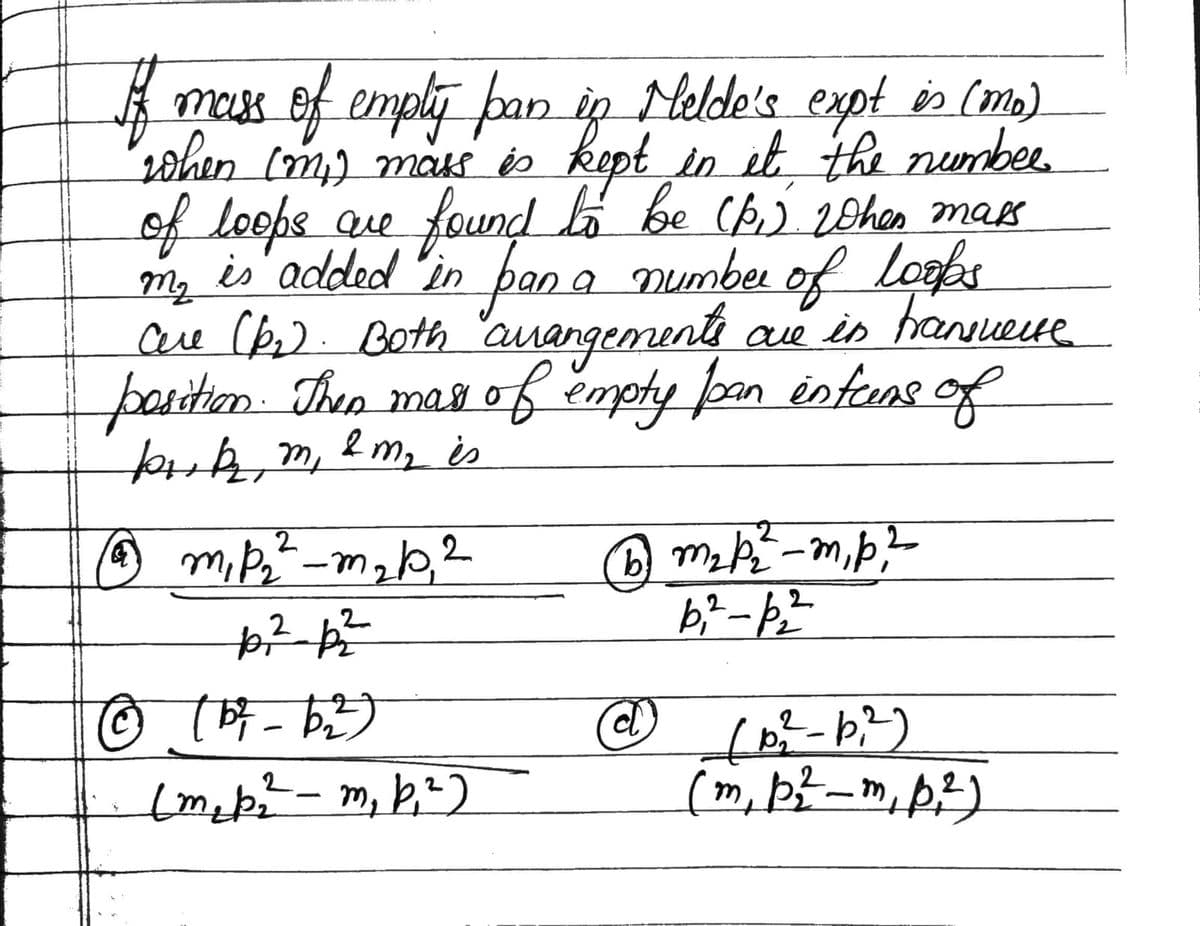 If mass of empty pan in Melde's expt is (m₀)
when (m₁) mass is kept in it, the number
of loops are found to be (p₁). When mass
m₂ is added in pan a number of loops
are (p₂). Both arrangements are in transverse
position. Then mass of empty pan in terms of
p₁, p₂, m₁ & m₂ is
(a) (m₁p₂² - m₂p₁²) / (p₁² - p₂²) (b) (m₂p₂² - m₁p₁²) / (p₁² - p₂²)
(c) (p₁² - p₂²) / (m₂p₂² - m₁p₁²) (d) (p₂² - p₁²) / (m₁p₂² - m₁p₁²)